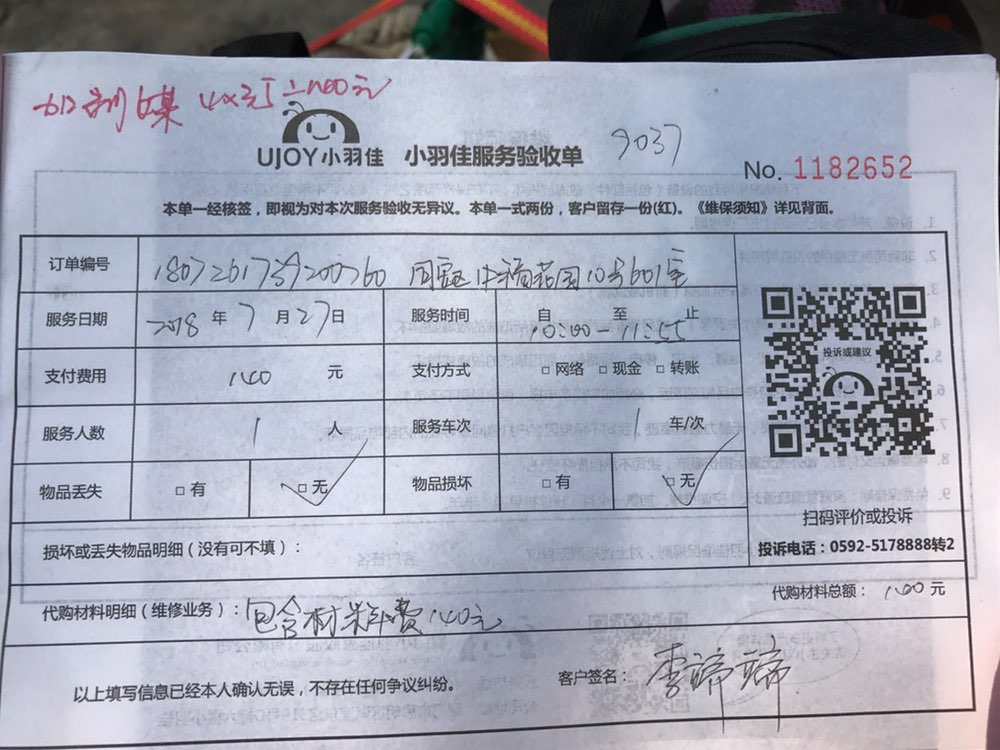 UJOY小羽佳 小羽佳服务验收单 9037
No. 1182652
本单一经核签，即视为对本次服务验收无异议。本单一式两份，客户留存一份(红)。《维保须知》详见背面。
订单编号 花园10号601室
服务日期 2018 年 7 月 27 日 服务时间 自 10:00 至 11:55 止
支付费用 140 元 支付方式 □网络 □现金 □转账
投诉或建议
服务人数 1 人 服务车次 1 车/次
物品丢失 □有 □无 物品损坏 □有 □无
扫码评价或投诉
损坏或丢失物品明细（没有可不填）：
投诉电话：0592-5178888转2
代购材料总额： 元
代购材料明细（维修业务）：包含材料费140元
以上填写信息已经本人确认无误，不存在任何争议纠纷。
客户签名：李